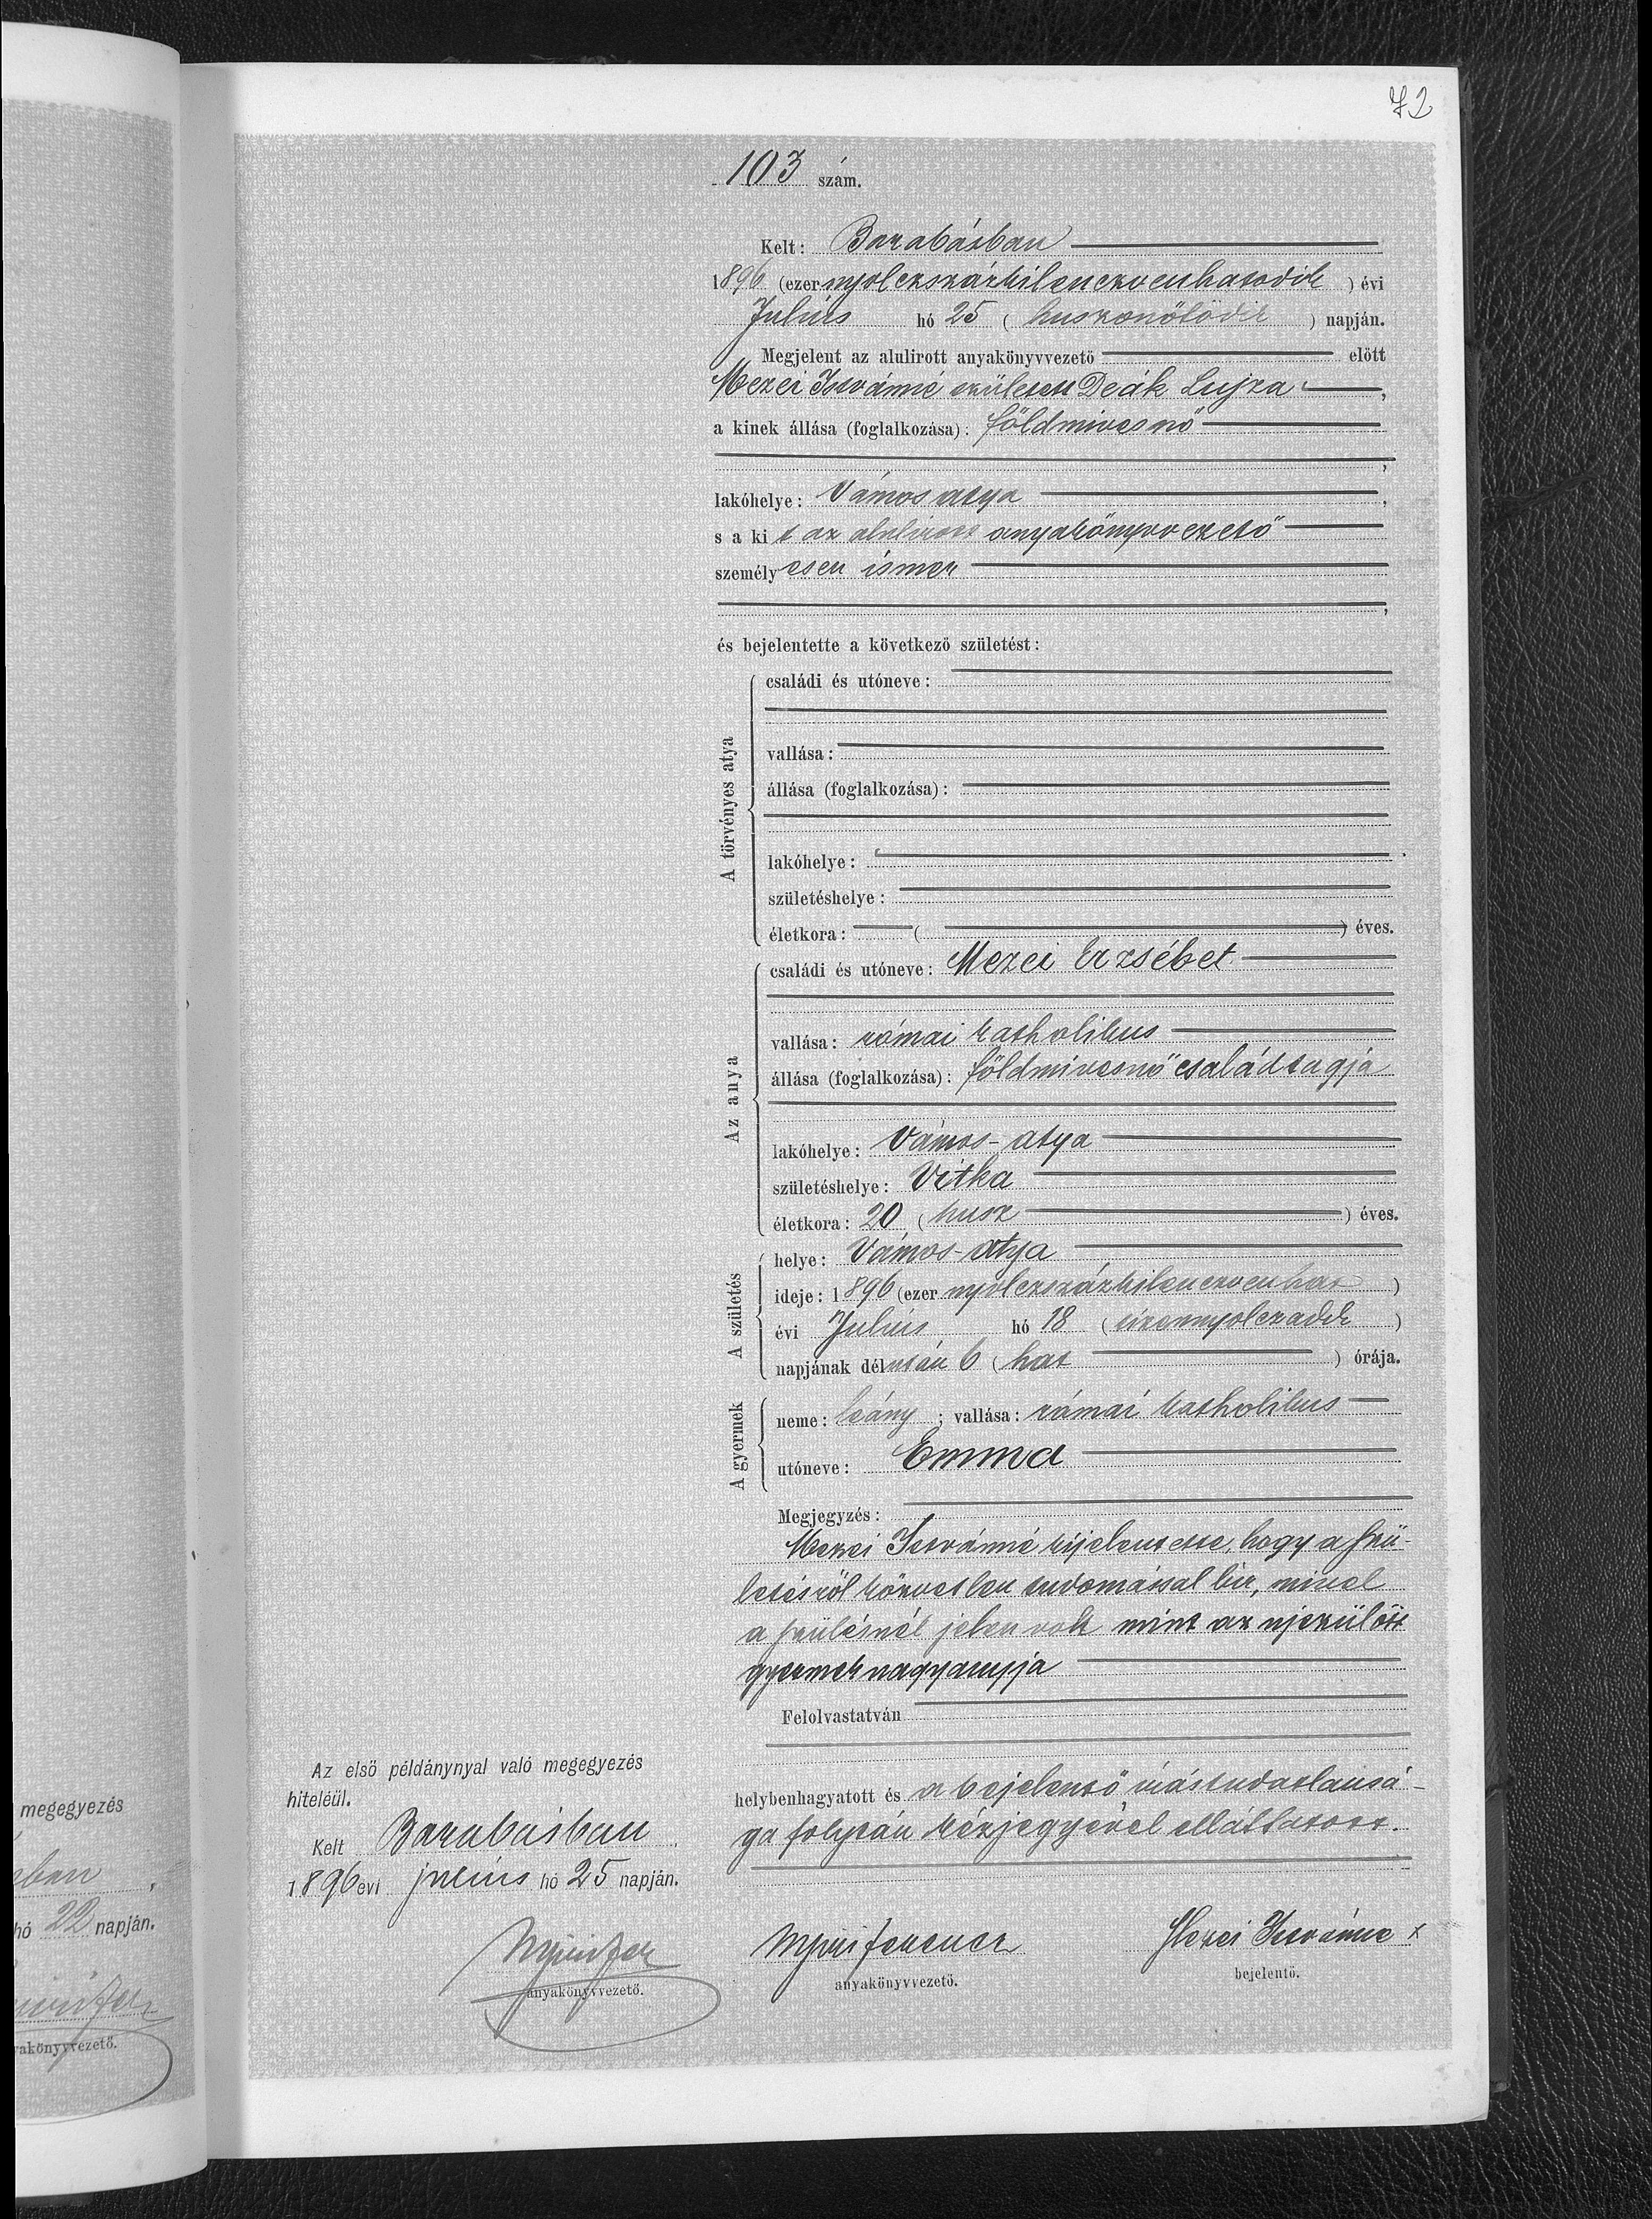 72
103 szám.
Kelt: Barabásban
1896 (ezernyolczszázkilenczvenhatodik) évi
Julius hó 25 (huszonötödik) napján.
Megjelent az alulirott anyakönyvvezető előtt
Mezei Istvánné született Deák Lujza,
a kinek állása (foglalkozása): földmivesnő
lakóhelye: Vámos atya,
s a kit az alulirott anyakönyvvezető
személyesen ismer,
és bejelentette a következő születést:
A törvényes atya
családi és utóneve:
vallása:
állása (foglalkozása):
lakóhelye:
születéshelye:
életkora: ( ) éves.
Az anya
családi és utóneve: Mezei Erzsébet
vallása: római katholikus
állása (foglalkozása): földmivesnő családtagja
lakóhelye: Vámos-atya
születéshelye: Vitka
életkora: 20 (husz) éves.
A születés
helye: Vámos-atya
ideje: 1896 (ezernyolczszázkilenczvenhat)
évi Julius hó 18 (tizennyolczadik)
napjának délután 6 (hat) órája.
A gyermek
neme: leány; vallása: római katholikus
utóneve: Emma
Megjegyzés:
Mezei Istvánné kijelentette, hogy a szü-
letésről közvetlen tudomással bir, mivel
a szülésnél jelen volt mint az ujszülött
gyermek nagyanyja
Felolvastatván
helybenhagyatott és a bejelentő irástudatlansá-
ga folytán kézjegyével elláttatott.
Az első példánynyal való megegyezés
hiteléül.
Kelt Barabásban
1896 évi julius hó 25 napján.
anyakönyvvezető.
Ferencz
anyakönyvvezető.
Mezei Istvánne x
bejelentő.
megegyezés
ban,
hó 22 napján.
yakönyvvezető.